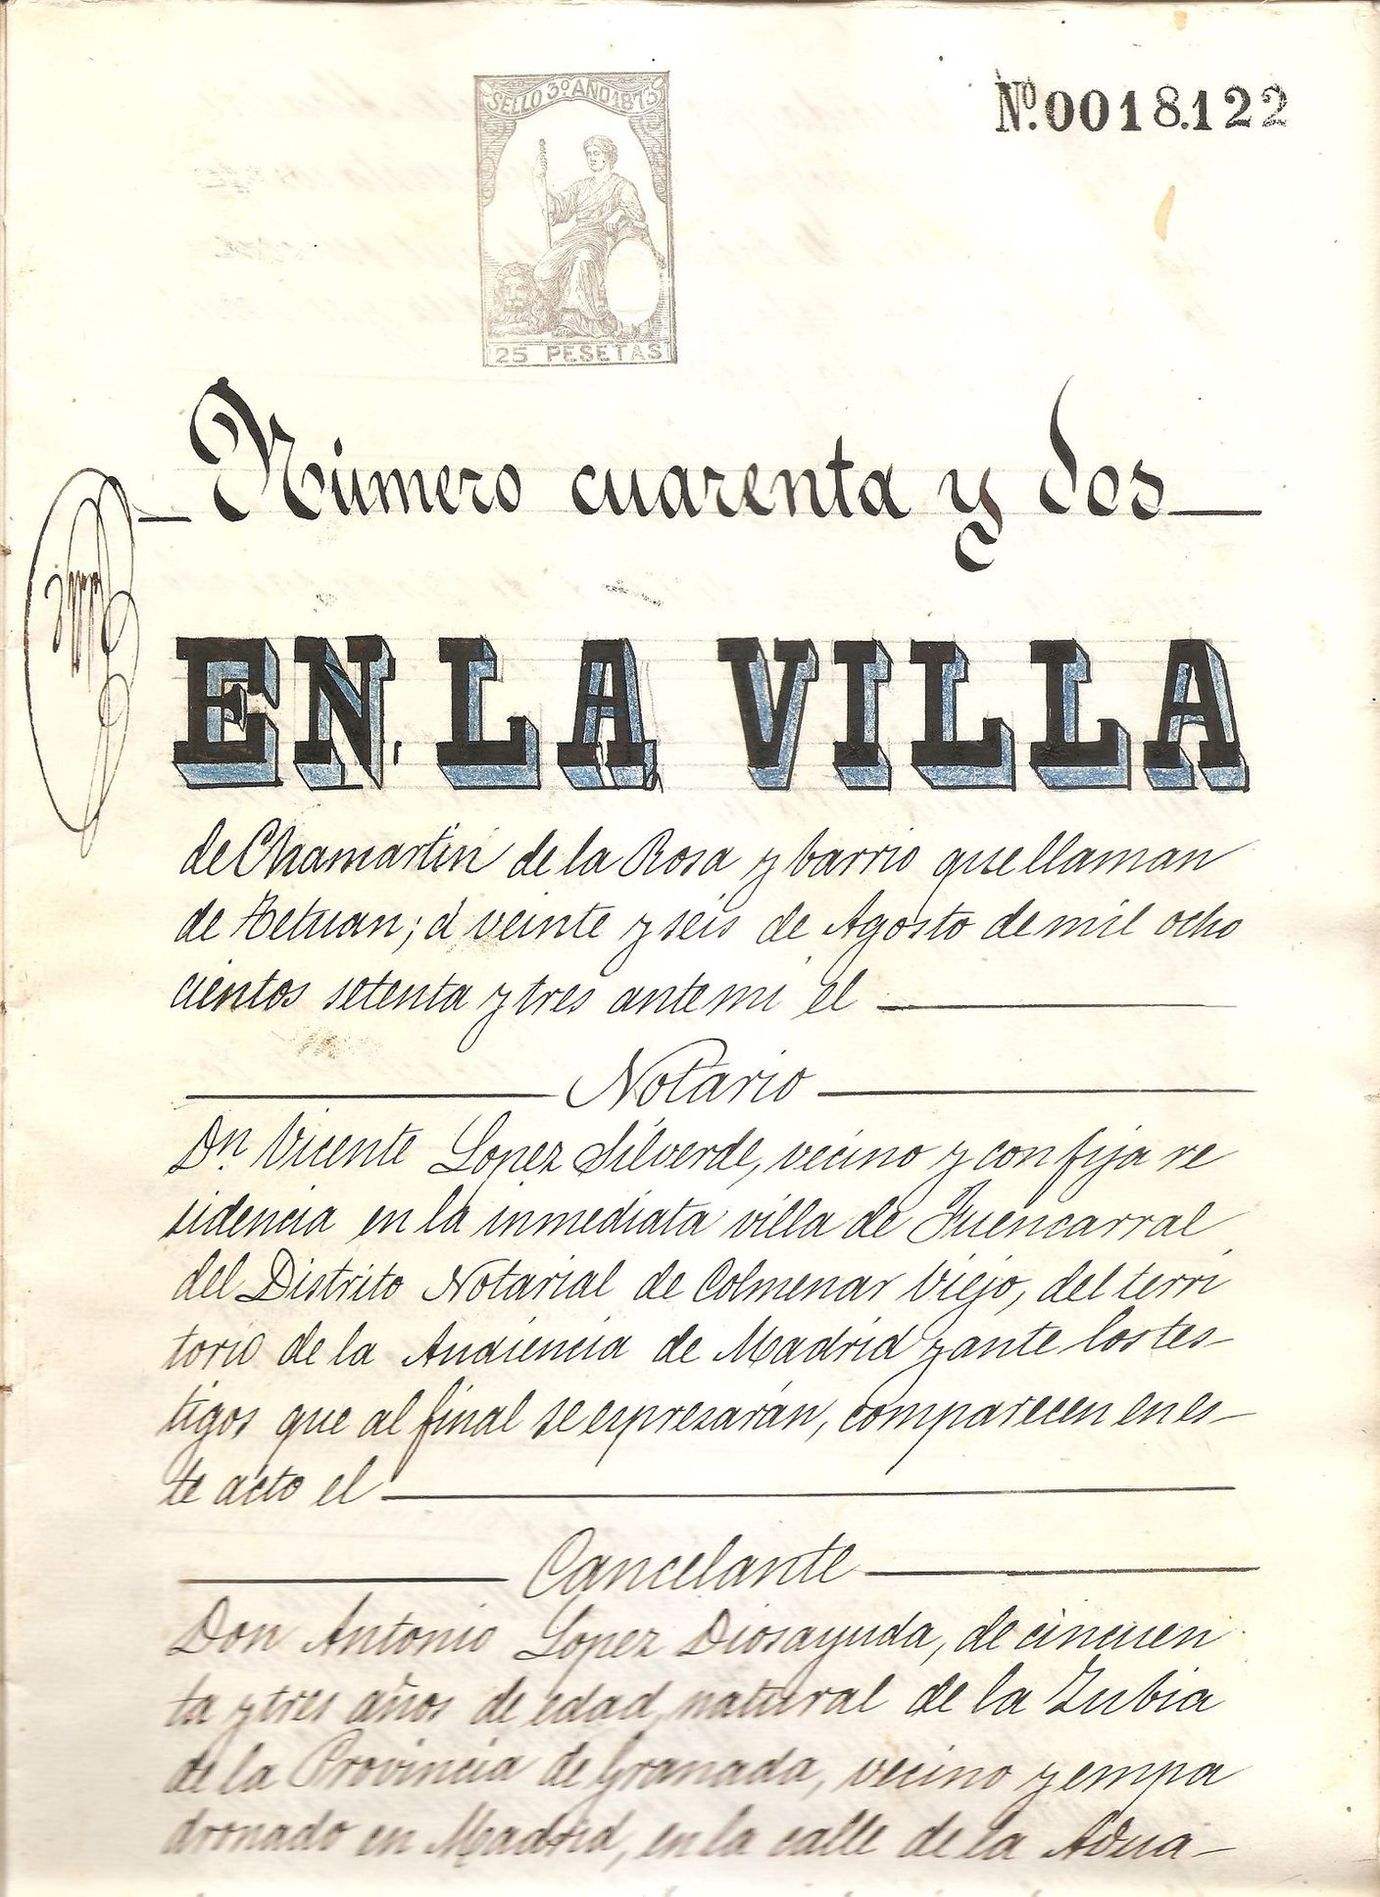 SELLO 3º AÑO 1873
Nº. 0018.122
25 PESETAS
Número cuarenta y dos
EN LA VILLA
de Chamartin de la Rosa y barrio que llaman
de Tetuan; á veinte y seis de Agosto de mil ocho
cientos setenta y tres ante mi el
Notario
Dn. Vicente Lopez Silverde, vecino y con fija re
sidencia en la inmediata villa de Fuencarral
del Distrito Notarial de Colmenar Viejo, del terri
torio de la Audiencia de Madrid y ante los tes-
tigos que al final se espresarán, comparecen en es-
te acto el
Cancelante
Don Antonio Lopez Diosayuda, de cincuen
ta y tres años de edad, natural de la Zubia
de la Provincia de Granada, vecino y empa
dronado en Madrid, en la calle de la Adua-